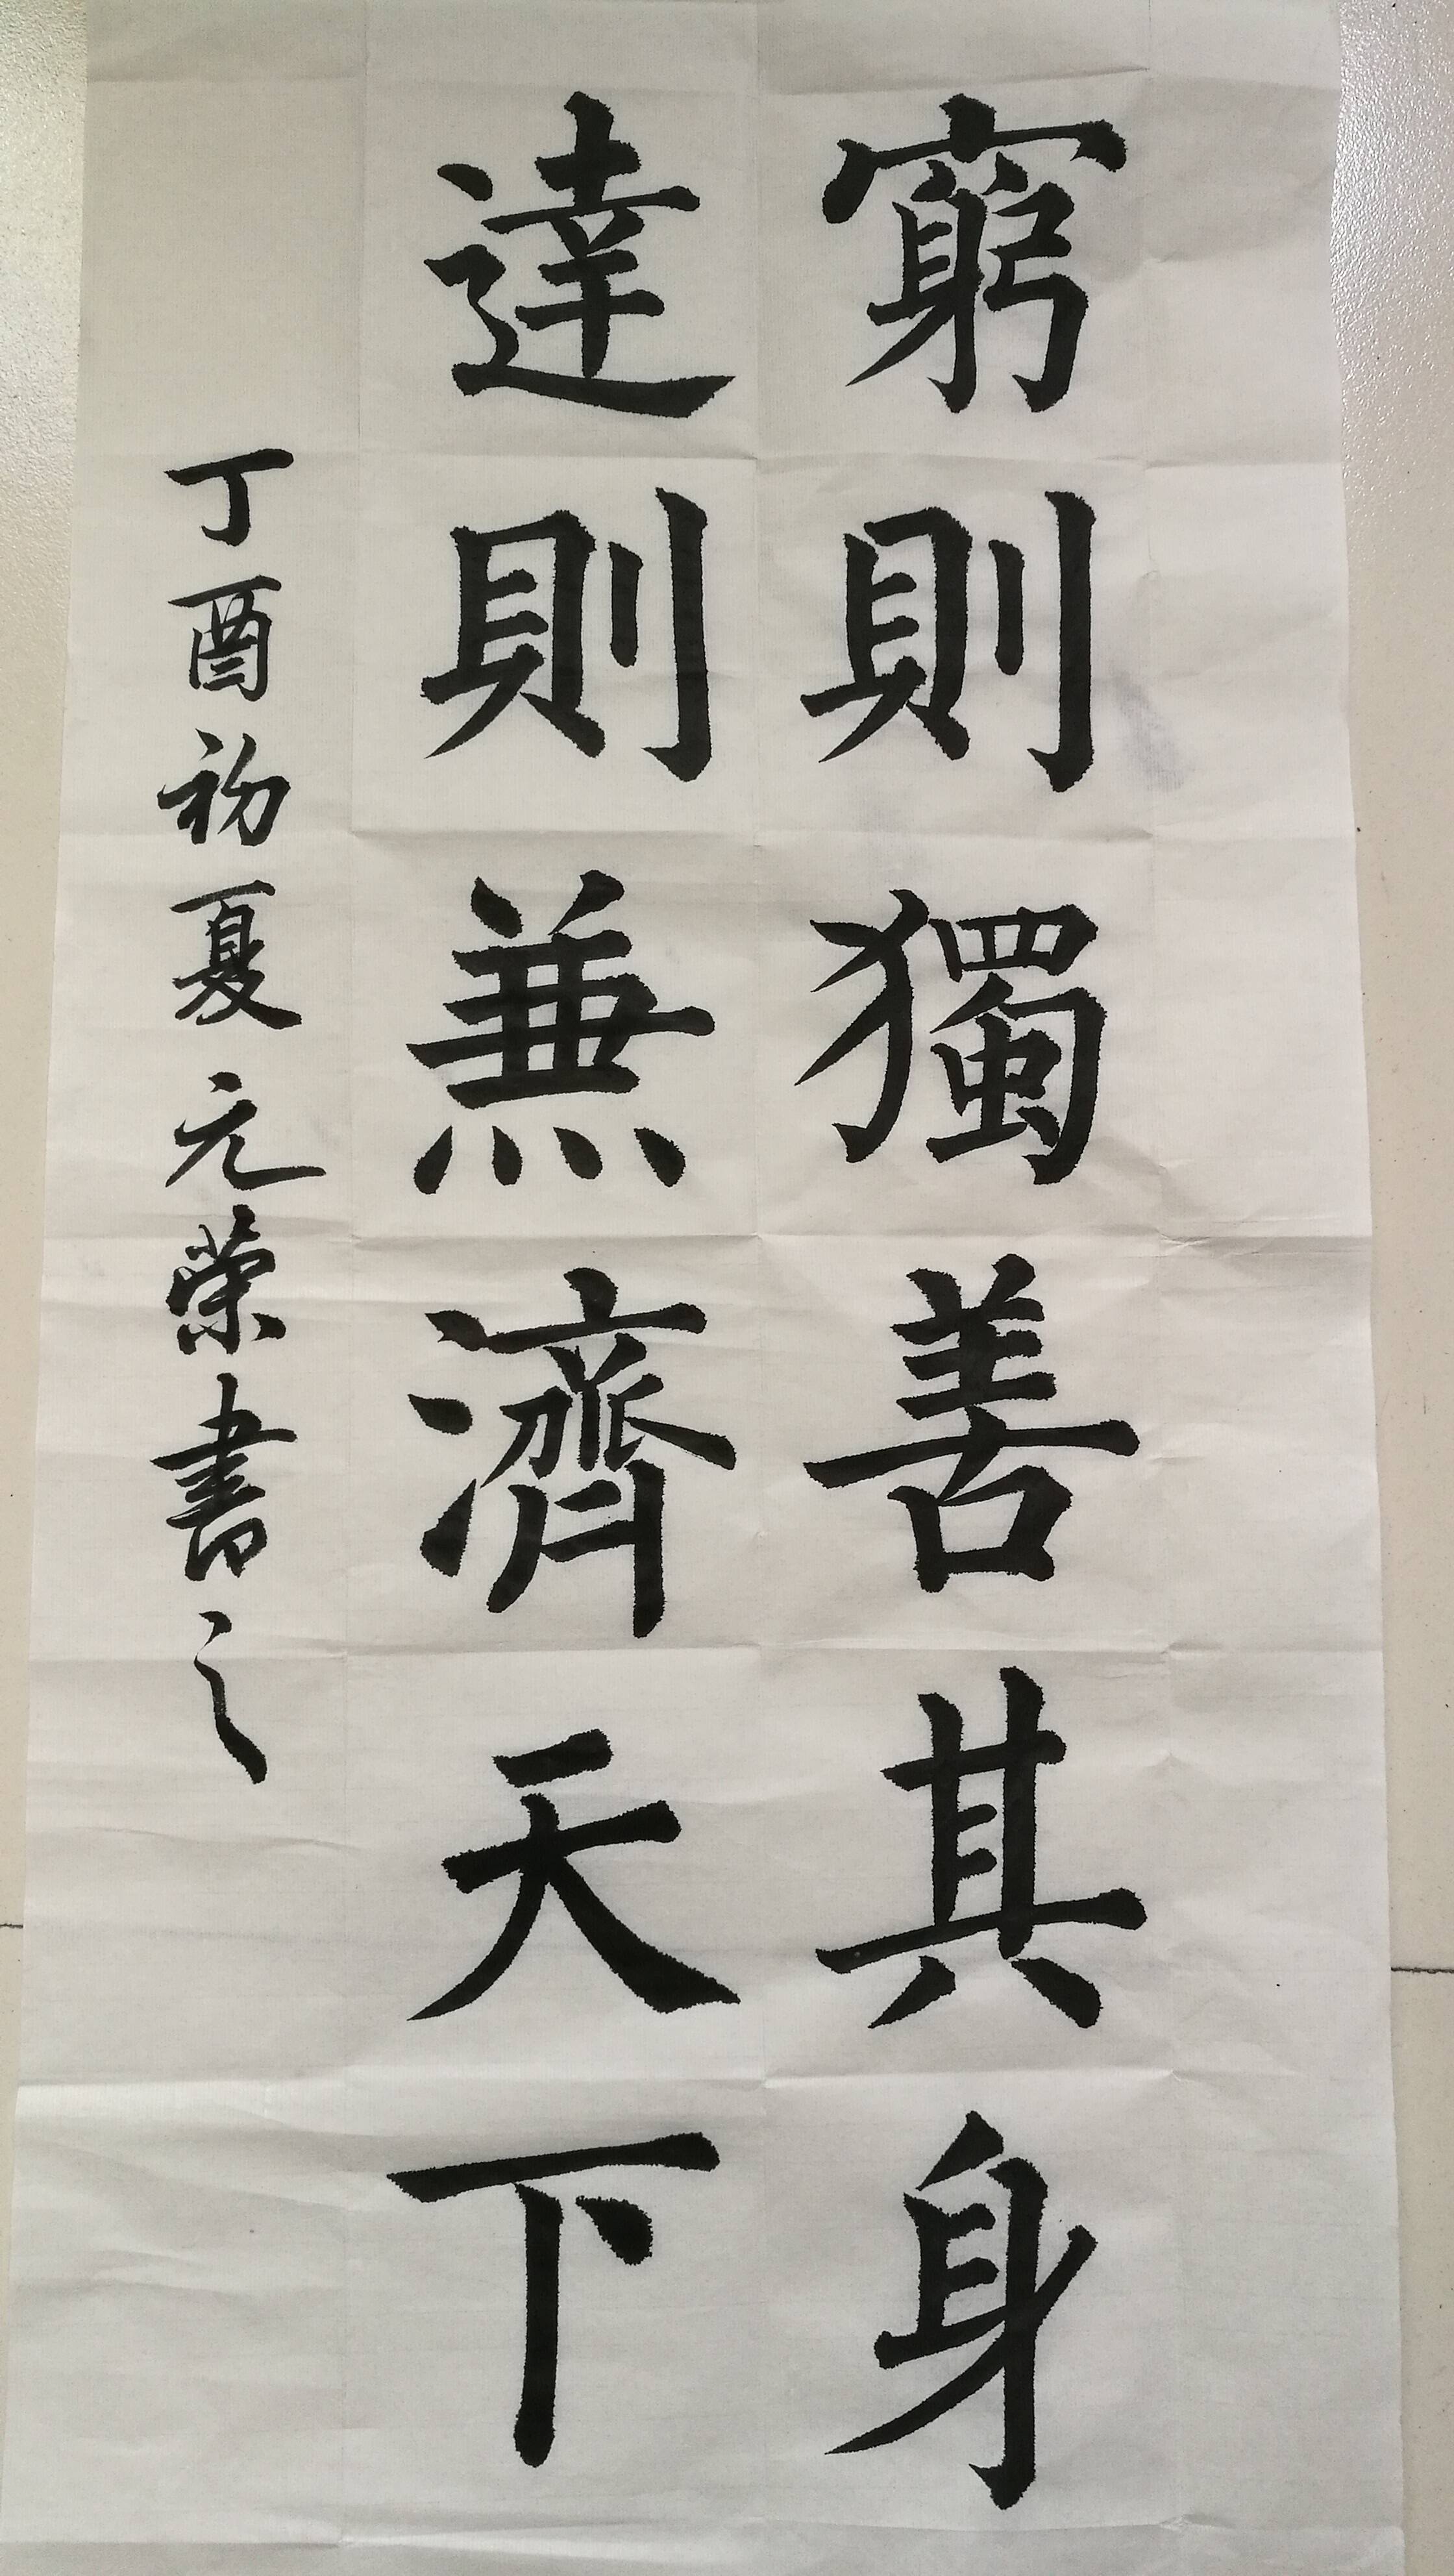 窮則獨善其身
達則兼濟天下
丁酉初夏元榮書之